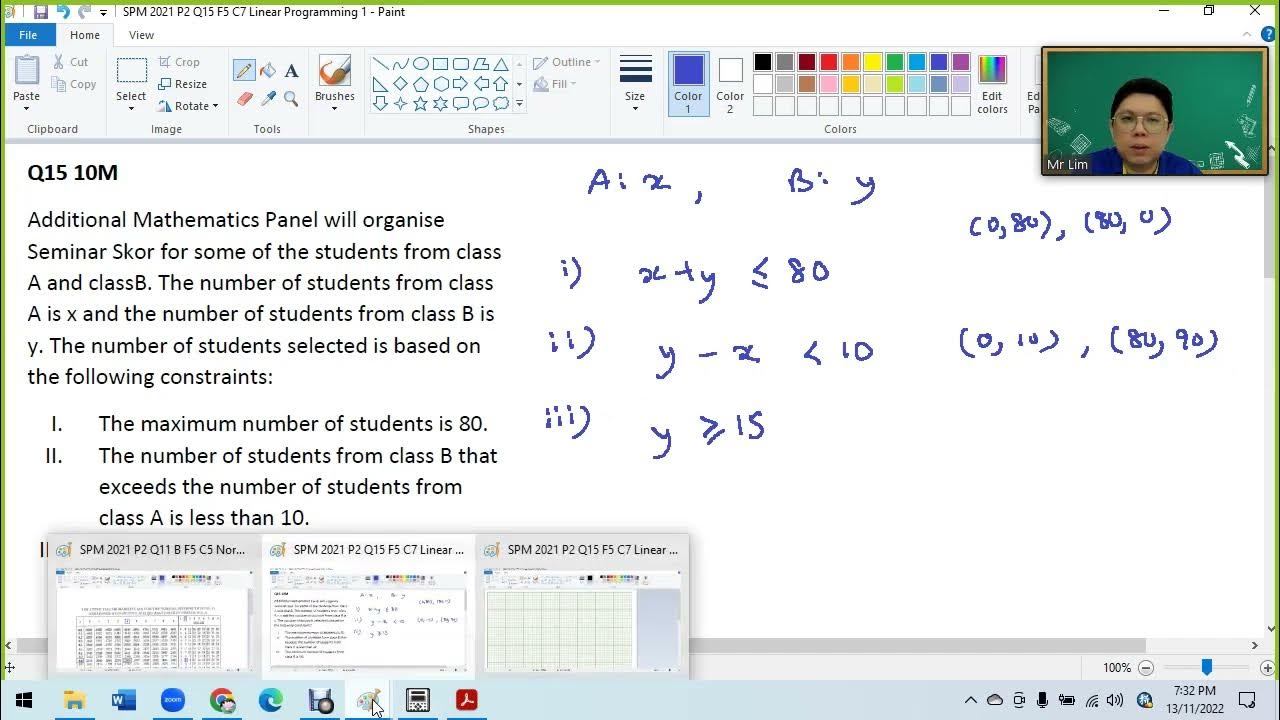 SPM 2021 P2 Q15 F5 C7 Linear Programming 1 - Paint
File Home View
Paste Cut Copy Clipboard
Select Crop Resize Rotate Image
A Tools
Brushes
Outline Fill Shapes
Size
Color 1 Color 2 Edit colors Colors
Mr Lim
Q15 10M
Additional Mathematics Panel will organise
Seminar Skor for some of the students from class
A and classB. The number of students from class
A is x and the number of students from class B is
y. The number of students selected is based on
the following constraints:
I. The maximum number of students is 80.
II. The number of students from class B that
exceeds the number of students from
class A is less than 10.
A: x , B: y
(0,80), (80, 0)
i) x+y ≤ 80
ii) y - x < 10 (0, 10) , (80, 90)
iii) y ≥ 15
SPM 2021 P2 Q11 B F5 C5 Nor...
SPM 2021 P2 Q15 F5 C7 Linear ...
SPM 2021 P2 Q15 F5 C7 Linear ...
100%
zoom
7:32 PM
13/11/2022